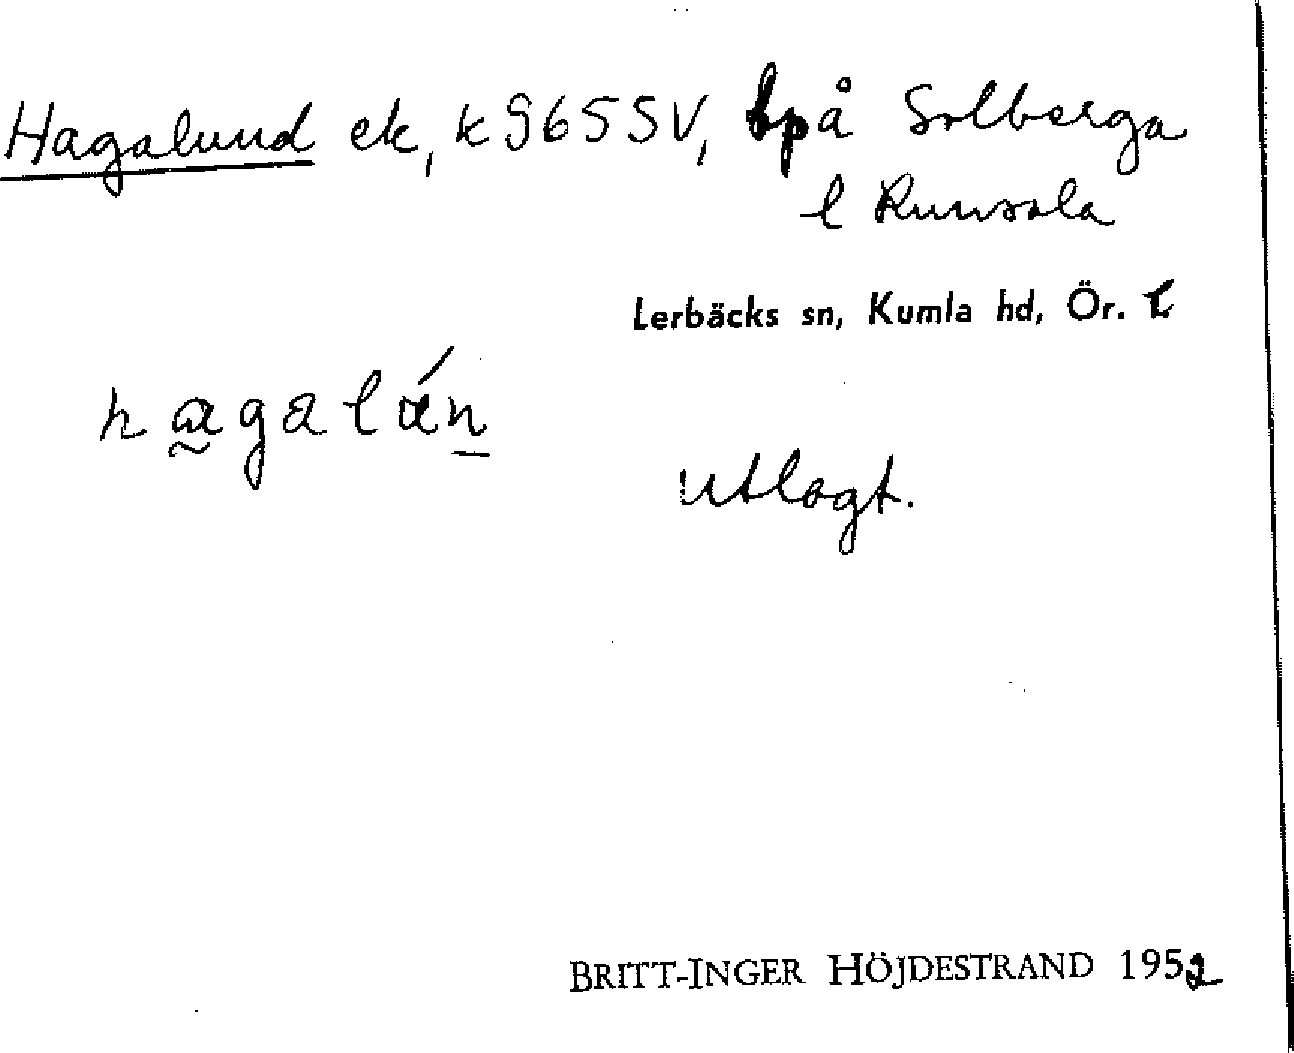 Hagalund ek, k 965 SV, bpå Solberga
l Runsala
Lerbäcks sn, Kumla hd, Ör. l
hagalán
utlagt.
BRITT-INGER HÖJDESTRAND 1952